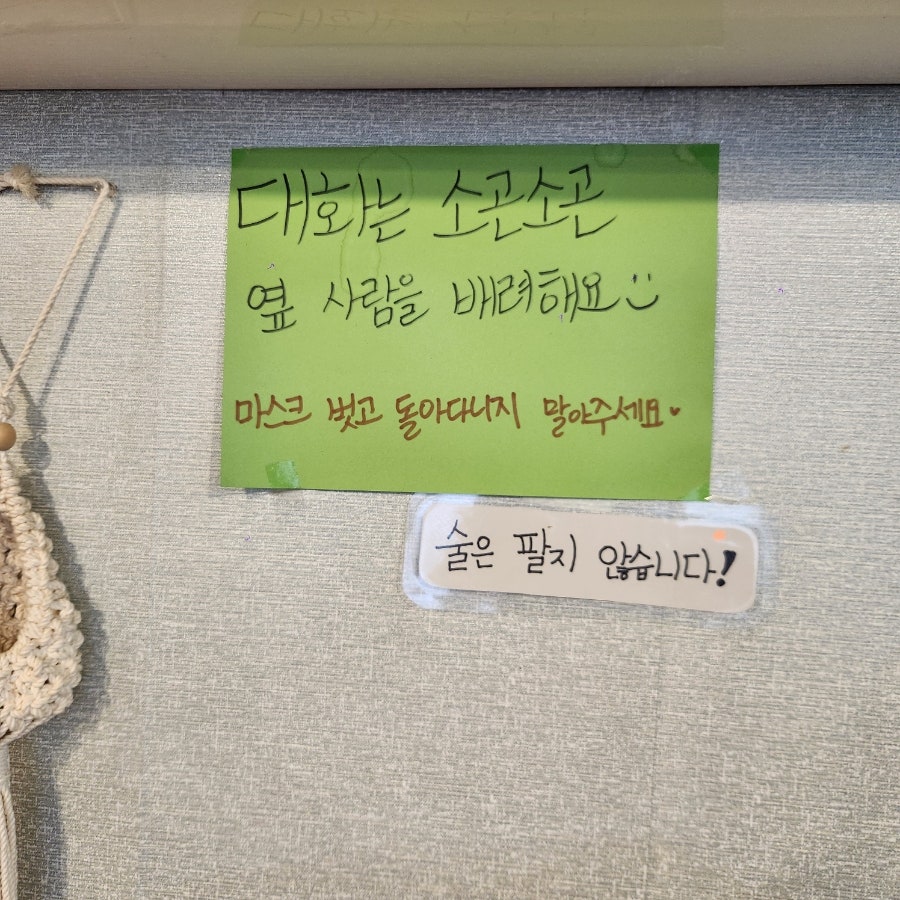 대화는 소곤소곤
옆 사람을 배려해요
마스크 벗고 돌아다니지 말아주세요
술은 팔지 않습니다!